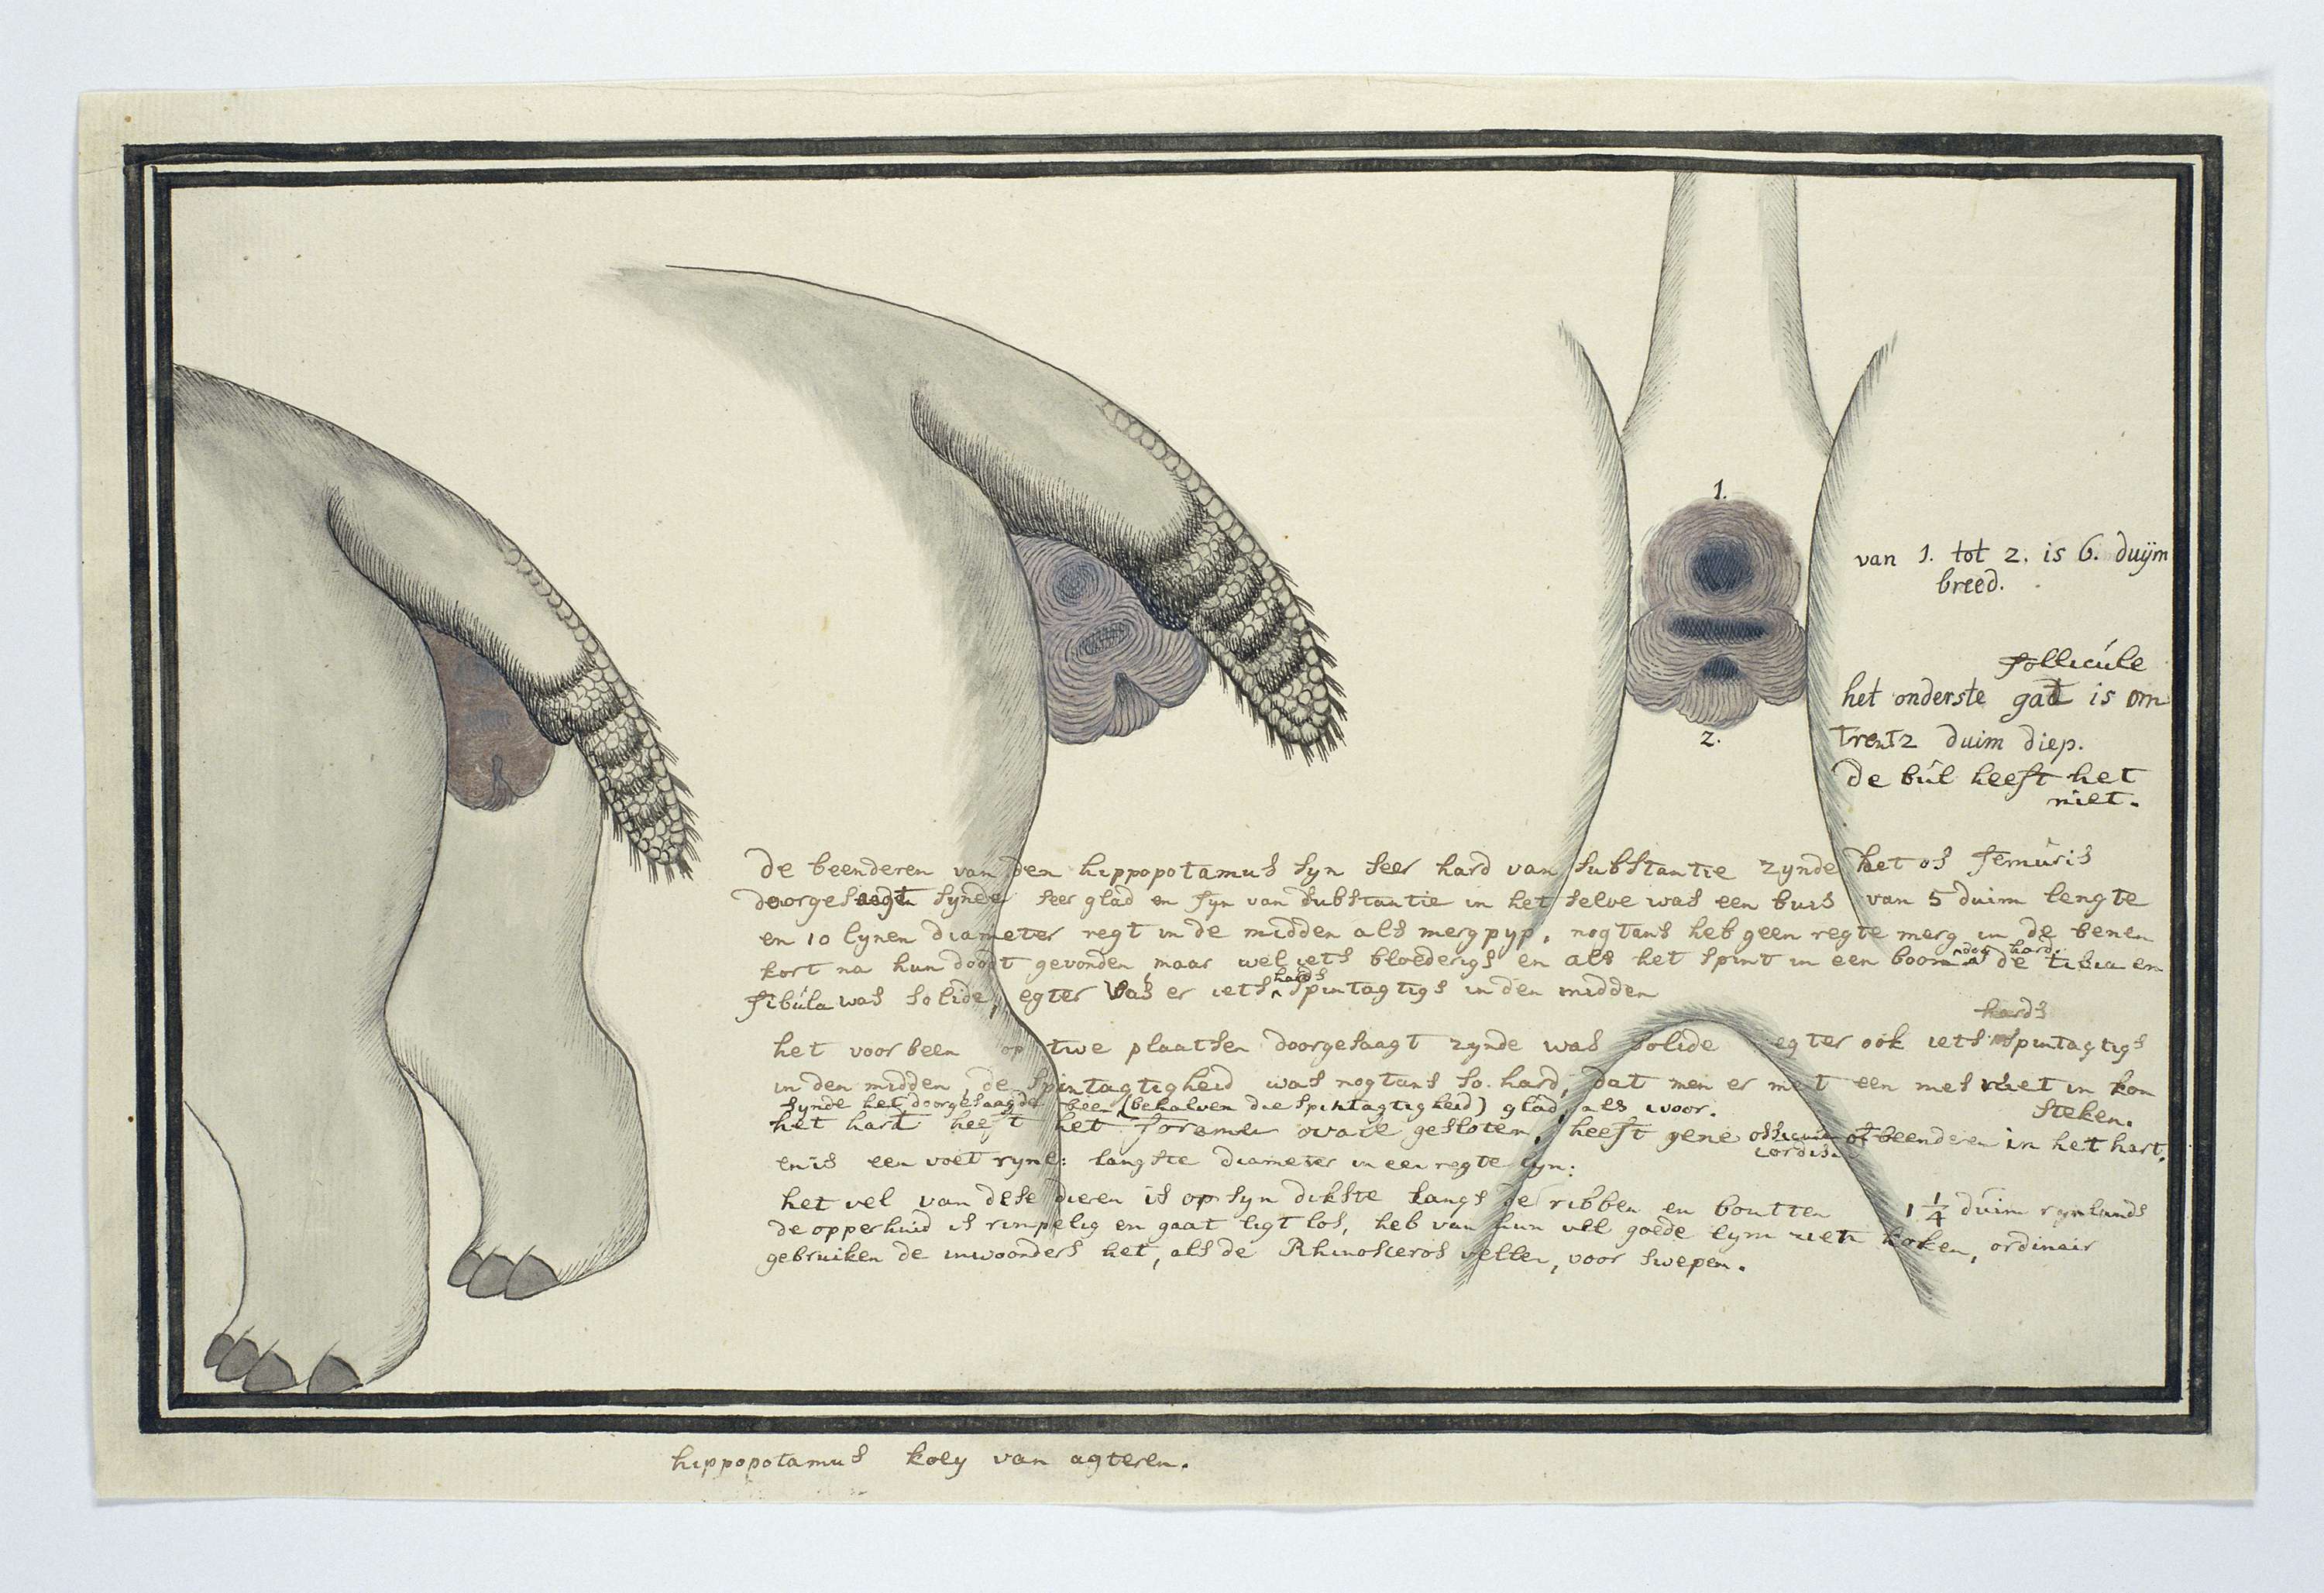 1.
van 1. tot 2. is 6. duijm
breed.
follicule
het onderste gat is om
trent 2 duim diep.
2.
de bul heeft het
niet.
De beenderen van den hippopotamus syn seer hard van substantie zynde het os femuris
doorgesaagt synde seer glad en fyn van substantie in het selve was een buis van 5 duim lengte
en 10 lynen diameter regt in de midden als mergpyp, nogtans heb geen regte merg in de benen
kort na hun doodt gevonden, maar wel iets bloederigs en als het spint in een boom dog hard. de tibia en
fibula was solide, egter was er iets hards spintagtigs in den midden
hards
het voorbeen op twe plaatsen doorgesaagt zynde was solide egter ook iets spintagtigs
in den midden, de spintagtigheid was nogtans so hard, dat men er met een mes niet in kon
steken.
synde het doorgesaagde been (behalven die spintagtigheid) glad, als ivoor.
het hart heeft het foramen ovale gesloten, heeft gene ossicula of beenderen in het hart,
cordis.
en is een voet rynl: langste diameter in een regte lyn:
het vel van dese dieren is op syn dikste langs de ribben en boutten 1 1/4 duim rynlands
de opperhuid is rimpelig en gaat ligt los, heb van hun vel goede lym sien koken, ordinair
gebruiken de inwoonders het, als de Rhinosceros vellen, voor swepen.
hippopotamus koey van agteren.